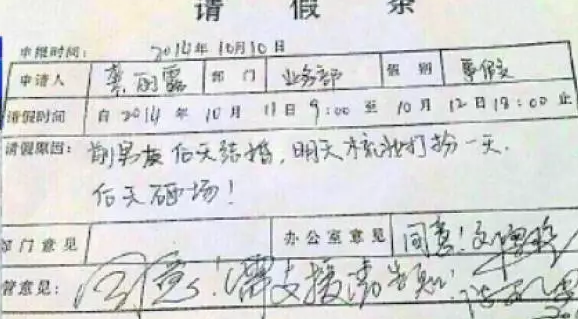 请 假 条
申报时间： 2014年10月10日
申请人 龚丽露 部门 业务部 假别 事假
请假时间 自2014年10月11日9:00至10月12日18:00止
请假原因： 前男友后天结婚，明天我打扮一天.
后天砸场！
部门意见 办公室意见 同意！
管意见： 同意！需支援请告知！